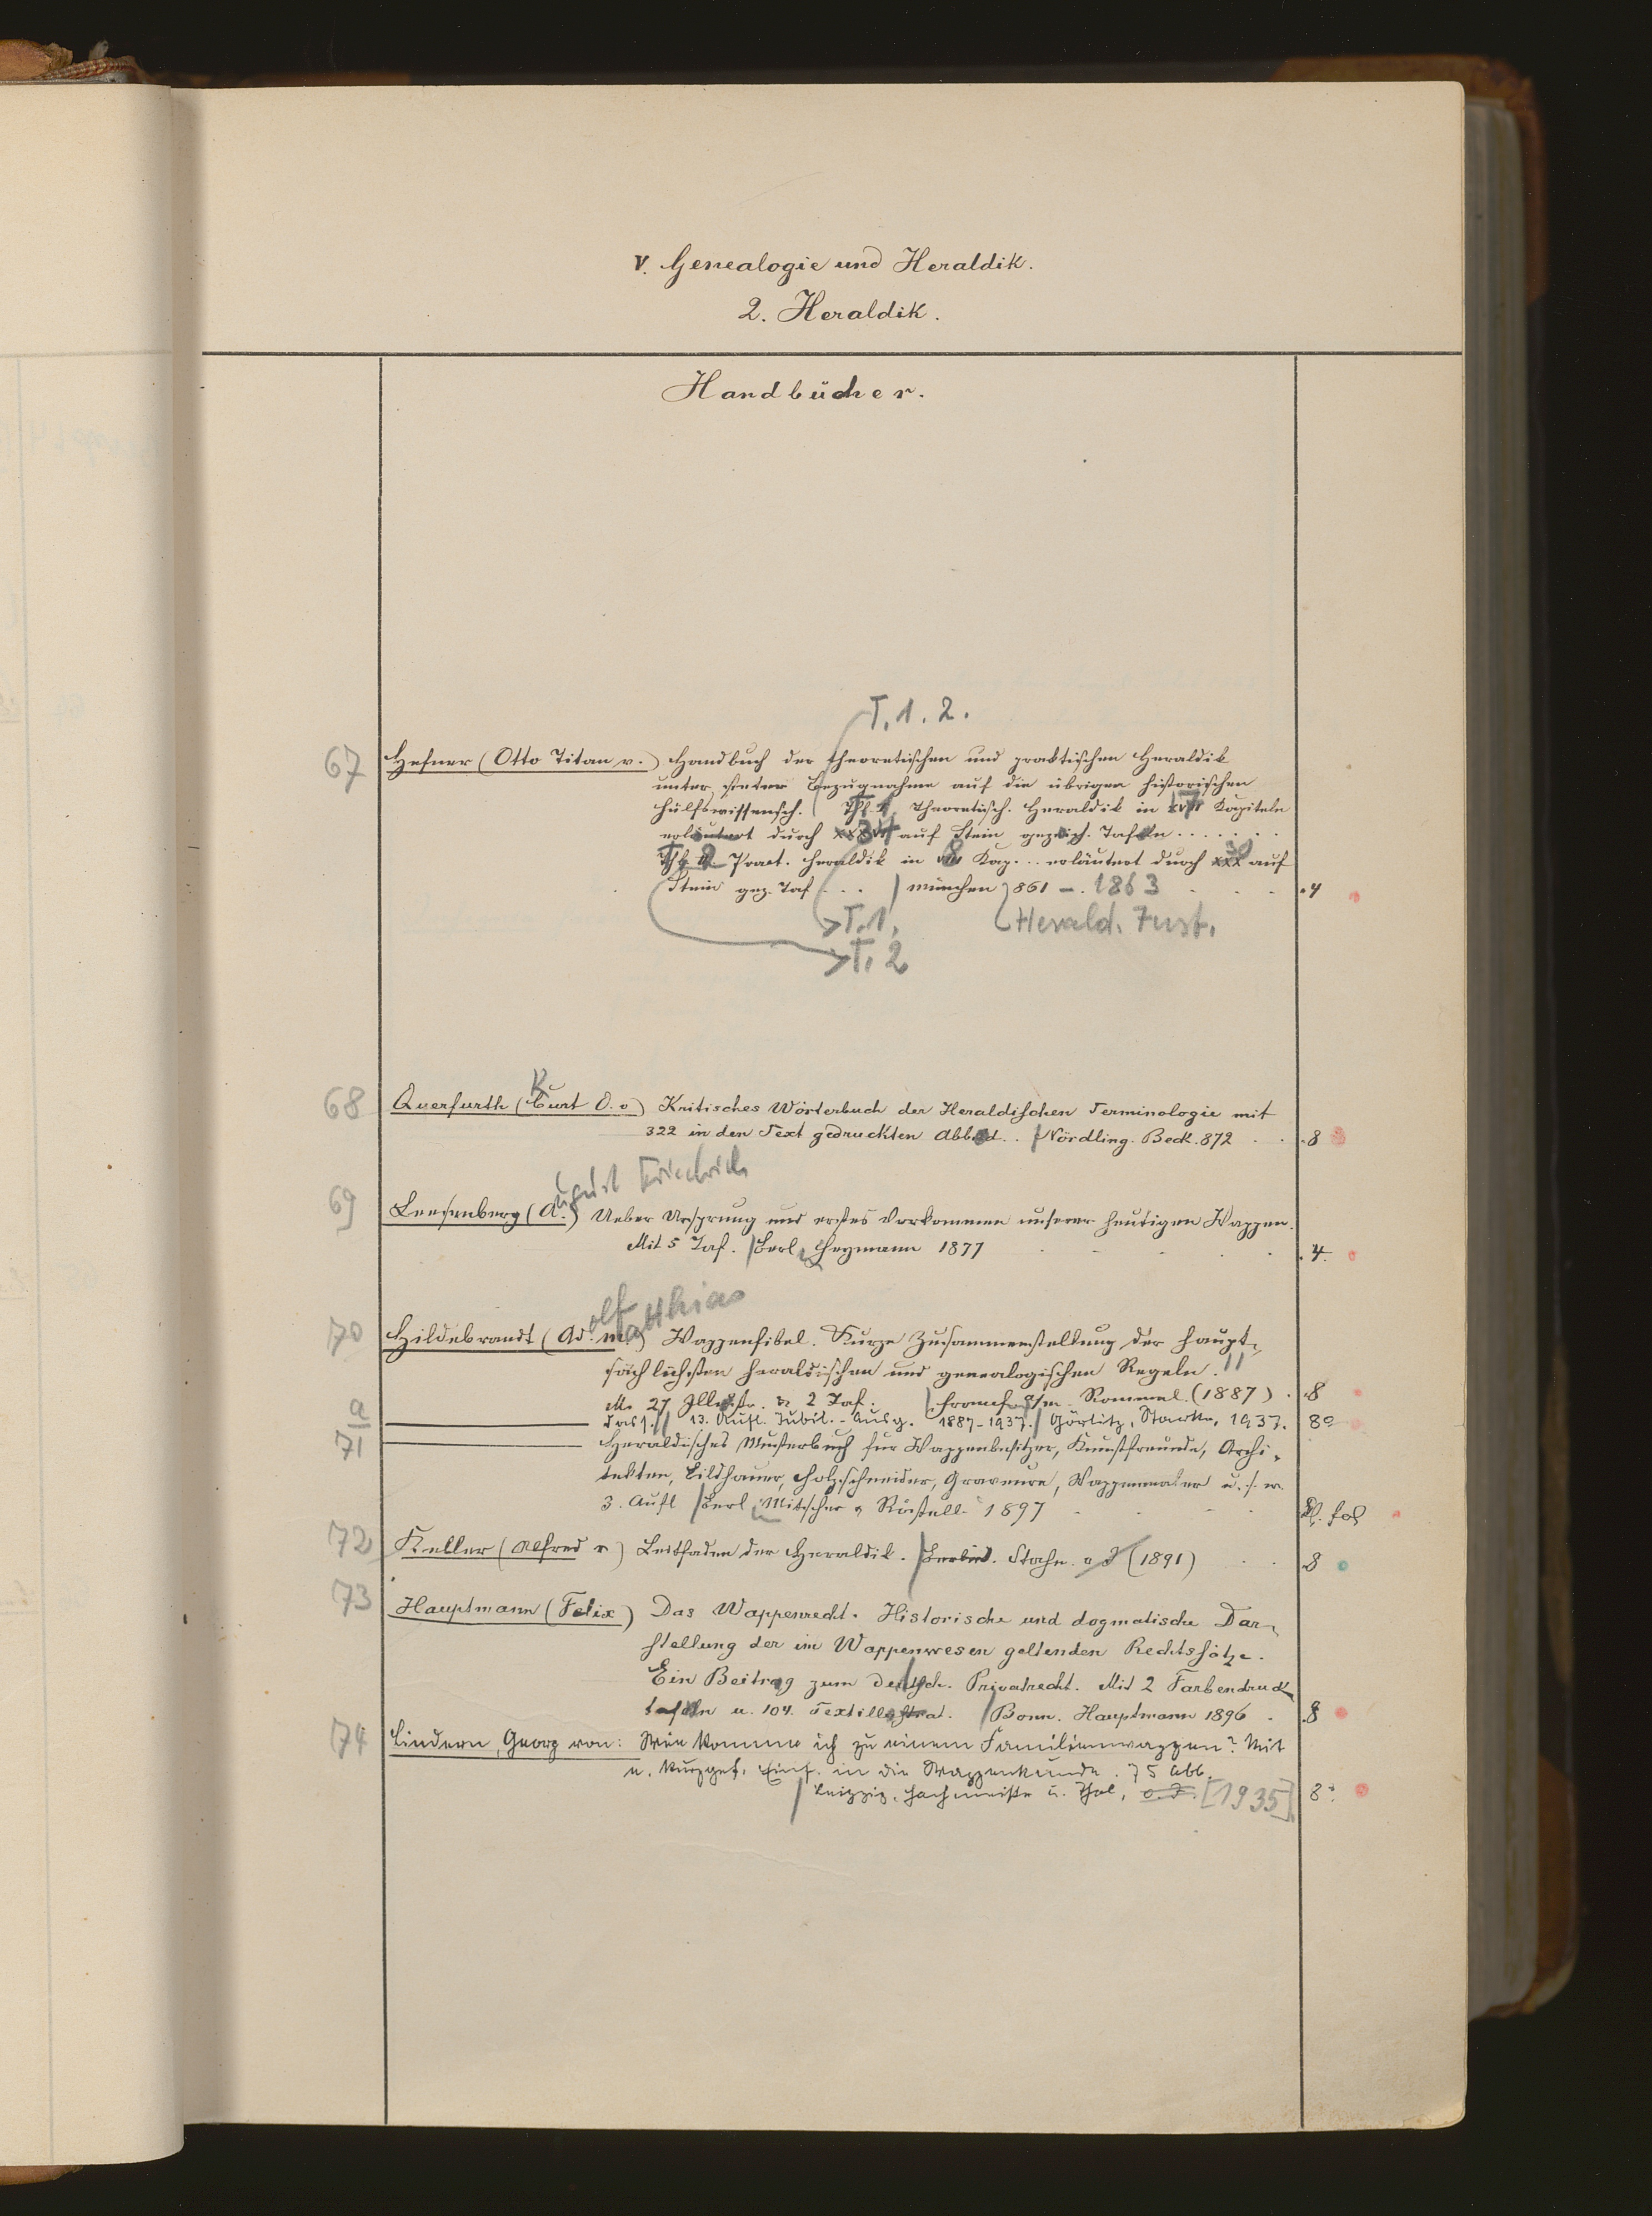 V. Genealogie und Heraldik.
2. Heraldik.
Handbücher.
T. 1. 2.
67 Hefner (Otto Titan v.) Handbuch der theoretischen und praktischen Heraldik
unter steter Bezugnahme auf die übrigen historischen
Hülfswissensch. T. 1, Theoretisch. Heraldik in 17 Kapiteln
erläutert durch 34 auf Stein gezeich. Tafeln . . . . . .
T. 2 Pract. Heraldik in 8 Kap. . . erläutert durch 30 auf
Stein gez. Taf . . . / München 861 – 1863 4
T. 1. Herald. Inst.
T. 2
68 Querfurth (Curt O. v) K Kritisches Wörterbuch der Heraldischen Terminologie mit
322 in den Text gedruckten Abbild. . / Nördling. Beck. 872 8
ugust Friedrich
69 Leesenberg (A.) Ueber Ursprung und erstes Vorkommen unserer heutigen Wappen.
Mit 5 Taf. / Berl, Heymann 1877 4.
olf atthias
70 Hildebrandt (Ad. M.) Wappenfibel. Kurze Zusammenstellung der haupt-
sächlichsten heraldischen und genealogischen Regeln. //
M. 27 Illustr. u. 2 Taf. / Frankf a/m. Rommel. (1887) . 8
a Dass. // 13. Aufl. Jubil.-Ausg. 1887-1937. / Görlitz, Starke, 1937. 8°
71 Heraldisches Musterbuch für Wappenbesitzer, Kunstfreunde, Archi-
tekten, Bildhauer, Holzschneider, Graveure, Wappenmaler u. s. w.
3. Aufl / Berl, Mitscher & Röstell 1897 Kl. fol
72 Keller (Alfred v) Leitfaden der Heraldik. / Berlin. Stahn. o J (1891) 8
73 Hauptmann (Felix) Das Wappenrecht. Historische und dogmatische Dar-
stellung der im Wappenwesen geltenden Rechtssätze.
Ein Beitrag zum deutsch. Privatrecht. Mit 2 Farbendruck
tafeln u. 104. Textillustrat. / Bonn. Hauptmann 1896 . 8
74 Lindern, Georg von: Wie komme ich zu einem Familienwappen? Mit
e. kurzgef. Einf. in die Wappenkunde. 75 Abb.
/ Leipzig, Hachmeister u. Thal, o. J. [1935] 8°.